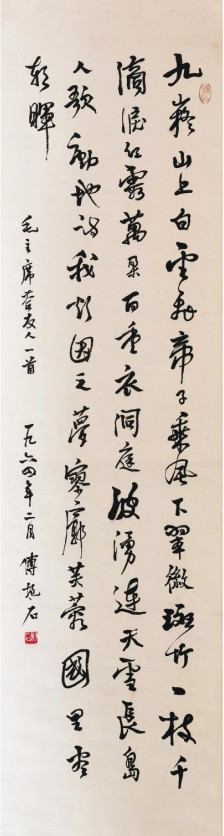 九嶷山上白雲飛帝子乘風下翠微斑竹一枝千
滴淚紅霞萬朵百重衣洞庭波湧連天雪長島
人歌動地詩我欲因之夢寥廓芙蓉國里盡
朝暉
毛主席答友人一首 一九六四年二月 傅抱石